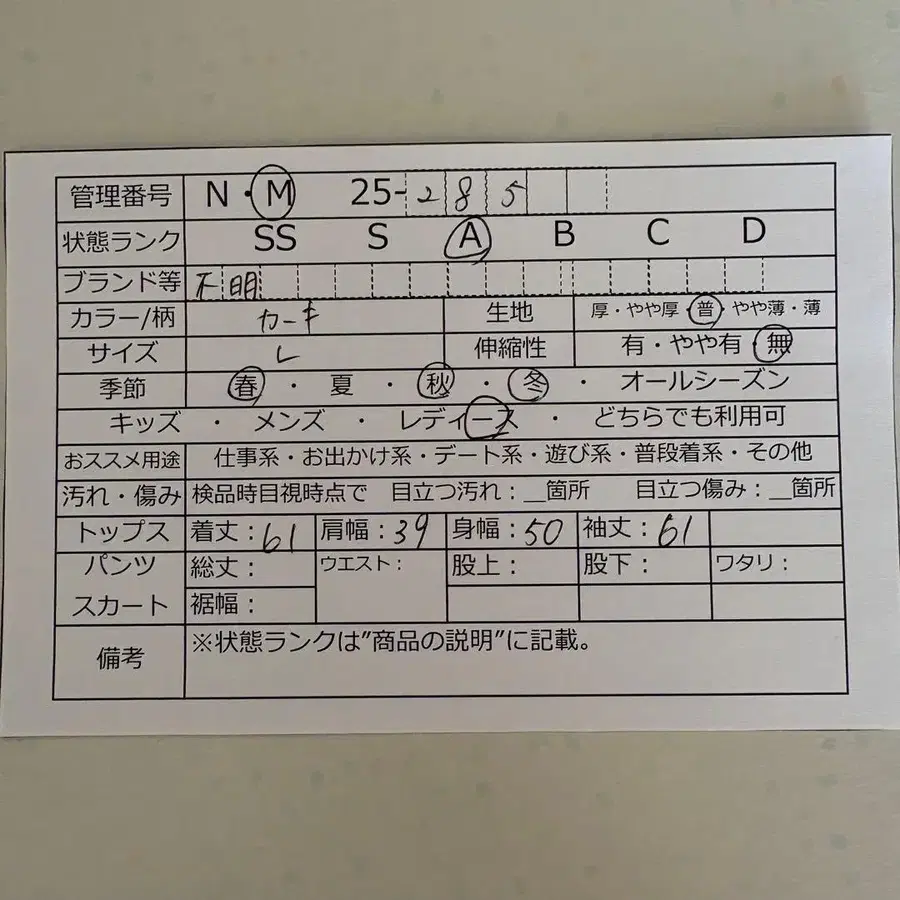 管理番号 N・M 25-285
状態ランク SS S A B C D
ブランド等 不明
カラー/柄 カーキ 生地 厚・やや厚・普・やや薄・薄
サイズ L 伸縮性 有・やや有・無
季節 春・夏・秋・冬・オールシーズン
キッズ・メンズ・レディース・どちらでも利用可
おススメ用途 仕事系・お出かけ系・デート系・遊び系・普段着系・その他
汚れ・傷み 検品時目視時点で 目立つ汚れ:__箇所 目立つ傷み:__箇所
トップス 着丈:61 肩幅:39 身幅:50 袖丈:61
パンツ 総丈: ウエスト: 股上: 股下: ワタリ:
スカート 裾幅:
備考 ※状態ランクは"商品の説明"に記載。